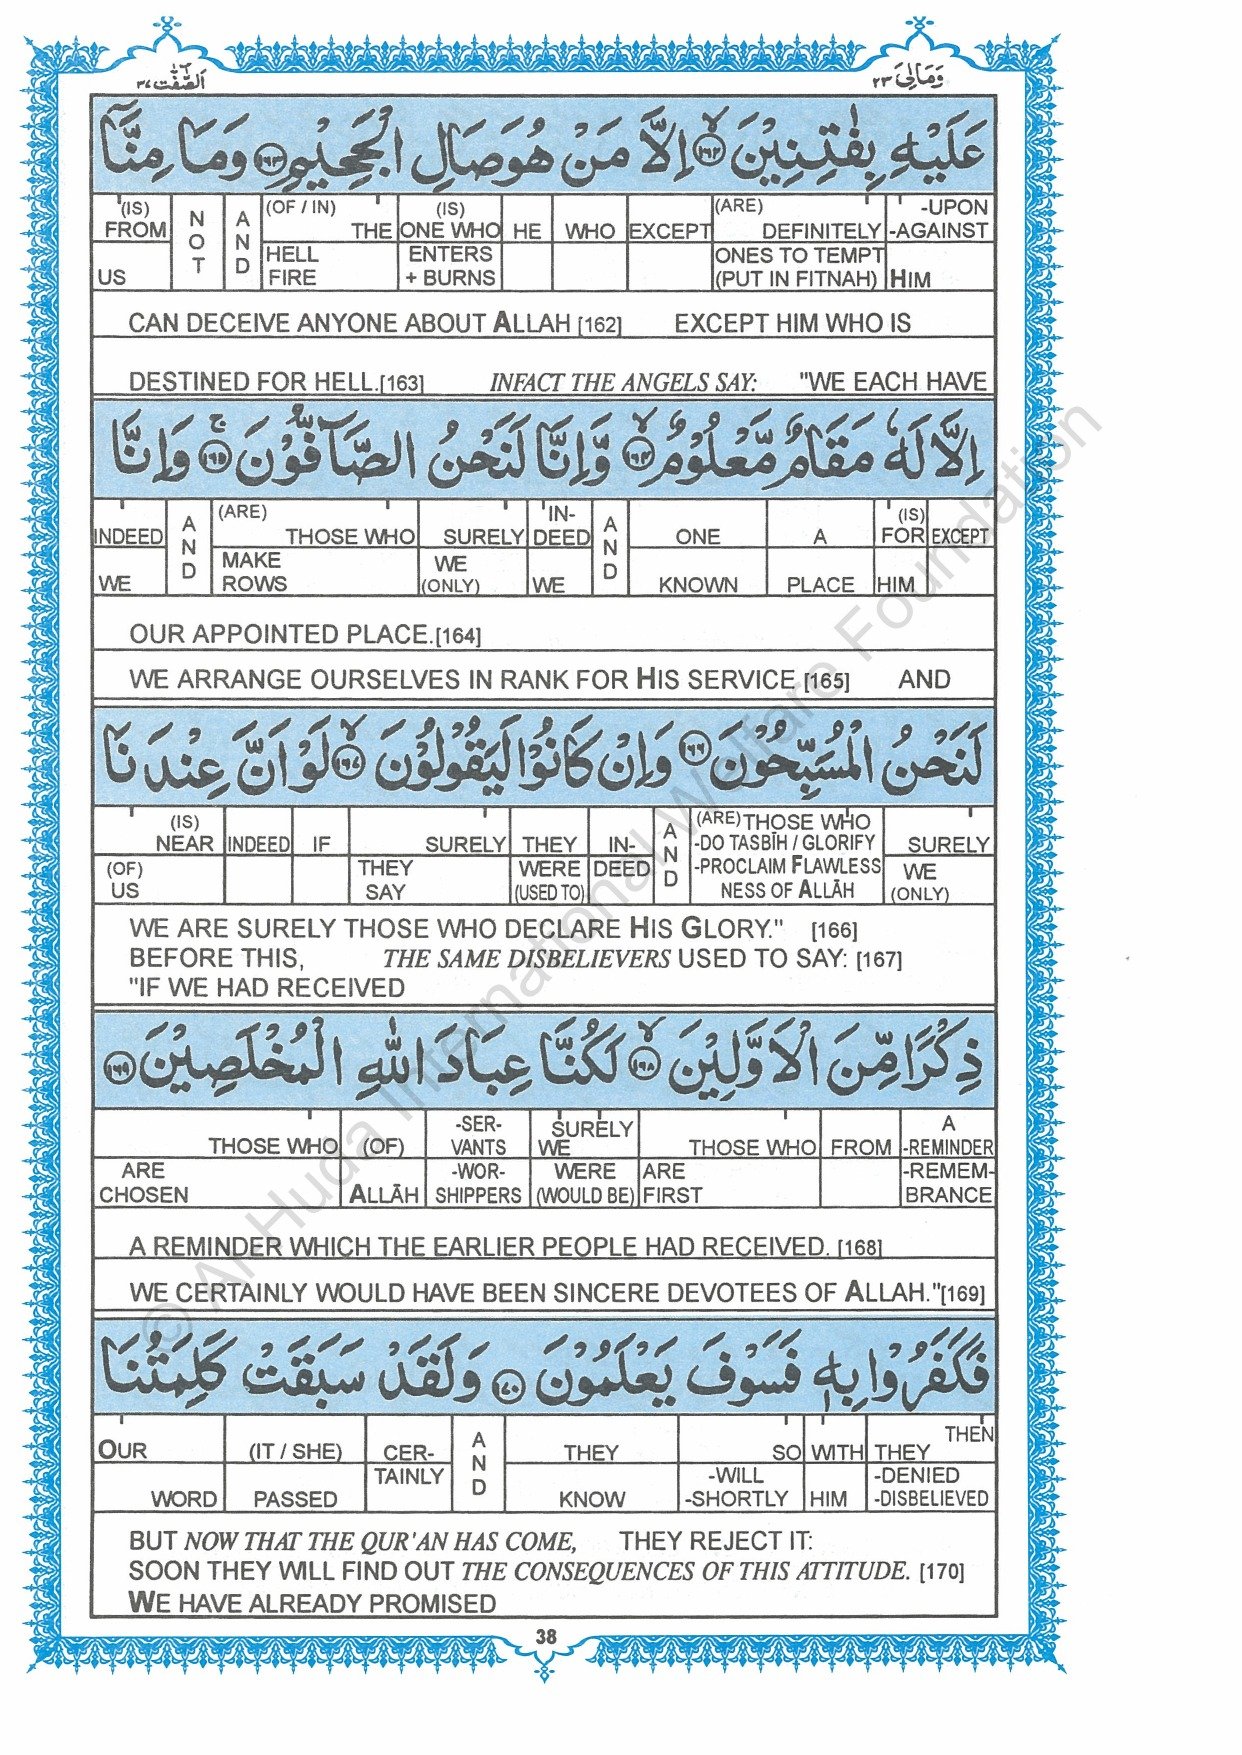 الصّٰفّٰت ٣٧
وَمَالِیَ ٢٣
عَلَيْهِ بِفٰتِنِيْنَ ۙ﴿١٦٢﴾ اِلَّا مَنْ هُوَ صَالِ الْجَحِيْمِ ﴿١٦٣﴾ وَمَا مِنَّاۤ
-UPON (ARE) EXCEPT WHO HE (IS) (OF / IN) A N (IS)
-AGAINST DEFINITELY ONE WHO THE N O FROM
HIM ONES TO TEMPT ENTERS HELL D T US
(PUT IN FITNAH) + BURNS FIRE
CAN DECEIVE ANYONE ABOUT ALLAH [162] EXCEPT HIM WHO IS
DESTINED FOR HELL.[163] INFACT THE ANGELS SAY: "WE EACH HAVE
اِلَّا لَهٗ مَقَامٌ مَّعْلُوْمٌ ۙ﴿١٦٤﴾ وَّاِنَّا لَنَحْنُ الصَّآفُّوْنَ ۚ﴿١٦٥﴾ وَاِنَّا
(IS) A IN- (ARE) A
EXCEPT FOR A ONE N DEED SURELY THOSE WHO N INDEED
HIM PLACE KNOWN D WE WE MAKE D WE
(ONLY) ROWS
OUR APPOINTED PLACE.[164]
WE ARRANGE OURSELVES IN RANK FOR HIS SERVICE [165] AND
لَنَحْنُ الْمُسَبِّحُوْنَ ﴿١٦٦﴾ وَاِنْ كَانُوْا لَيَقُوْلُوْنَ ۙ﴿١٦٧﴾ لَوْ اَنَّ عِنْدَنَا
(ARE) THOSE WHO A (IS)
SURELY -DO TASBĪH / GLORIFY N IN- THEY SURELY IF INDEED NEAR
WE -PROCLAIM FLAWLESS D DEED WERE THEY (OF)
(ONLY) NESS OF ALLĀH (USED TO) SAY US
WE ARE SURELY THOSE WHO DECLARE HIS GLORY." [166]
BEFORE THIS, THE SAME DISBELIEVERS USED TO SAY: [167]
"IF WE HAD RECEIVED
ذِكْرًا مِّنَ الْاَوَّلِيْنَ ۙ﴿١٦٨﴾ لَكُنَّا عِبَادَ اللّٰهِ الْمُخْلَصِيْنَ ﴿١٦٩﴾
A SURELY -SER-
-REMINDER FROM THOSE WHO WE VANTS (OF) THOSE WHO
-REMEM- ARE WERE -WOR- ALLĀH ARE
BRANCE FIRST (WOULD BE) SHIPPERS CHOSEN
A REMINDER WHICH THE EARLIER PEOPLE HAD RECEIVED. [168]
WE CERTAINLY WOULD HAVE BEEN SINCERE DEVOTEES OF ALLAH."[169]
فَكَفَرُوْا بِهٖ فَسَوْفَ يَعْلَمُوْنَ ﴿١٧٠﴾ وَلَقَدْ سَبَقَتْ كَلِمَتُنَا
THEN A
THEY WITH SO THEY N CER- (IT / SHE) OUR
-DENIED HIM -WILL KNOW D TAINLY PASSED WORD
-DISBELIEVED -SHORTLY
BUT NOW THAT THE QUR'AN HAS COME, THEY REJECT IT:
SOON THEY WILL FIND OUT THE CONSEQUENCES OF THIS ATTITUDE. [170]
WE HAVE ALREADY PROMISED
38
© Al-Huda International Welfare Foundation